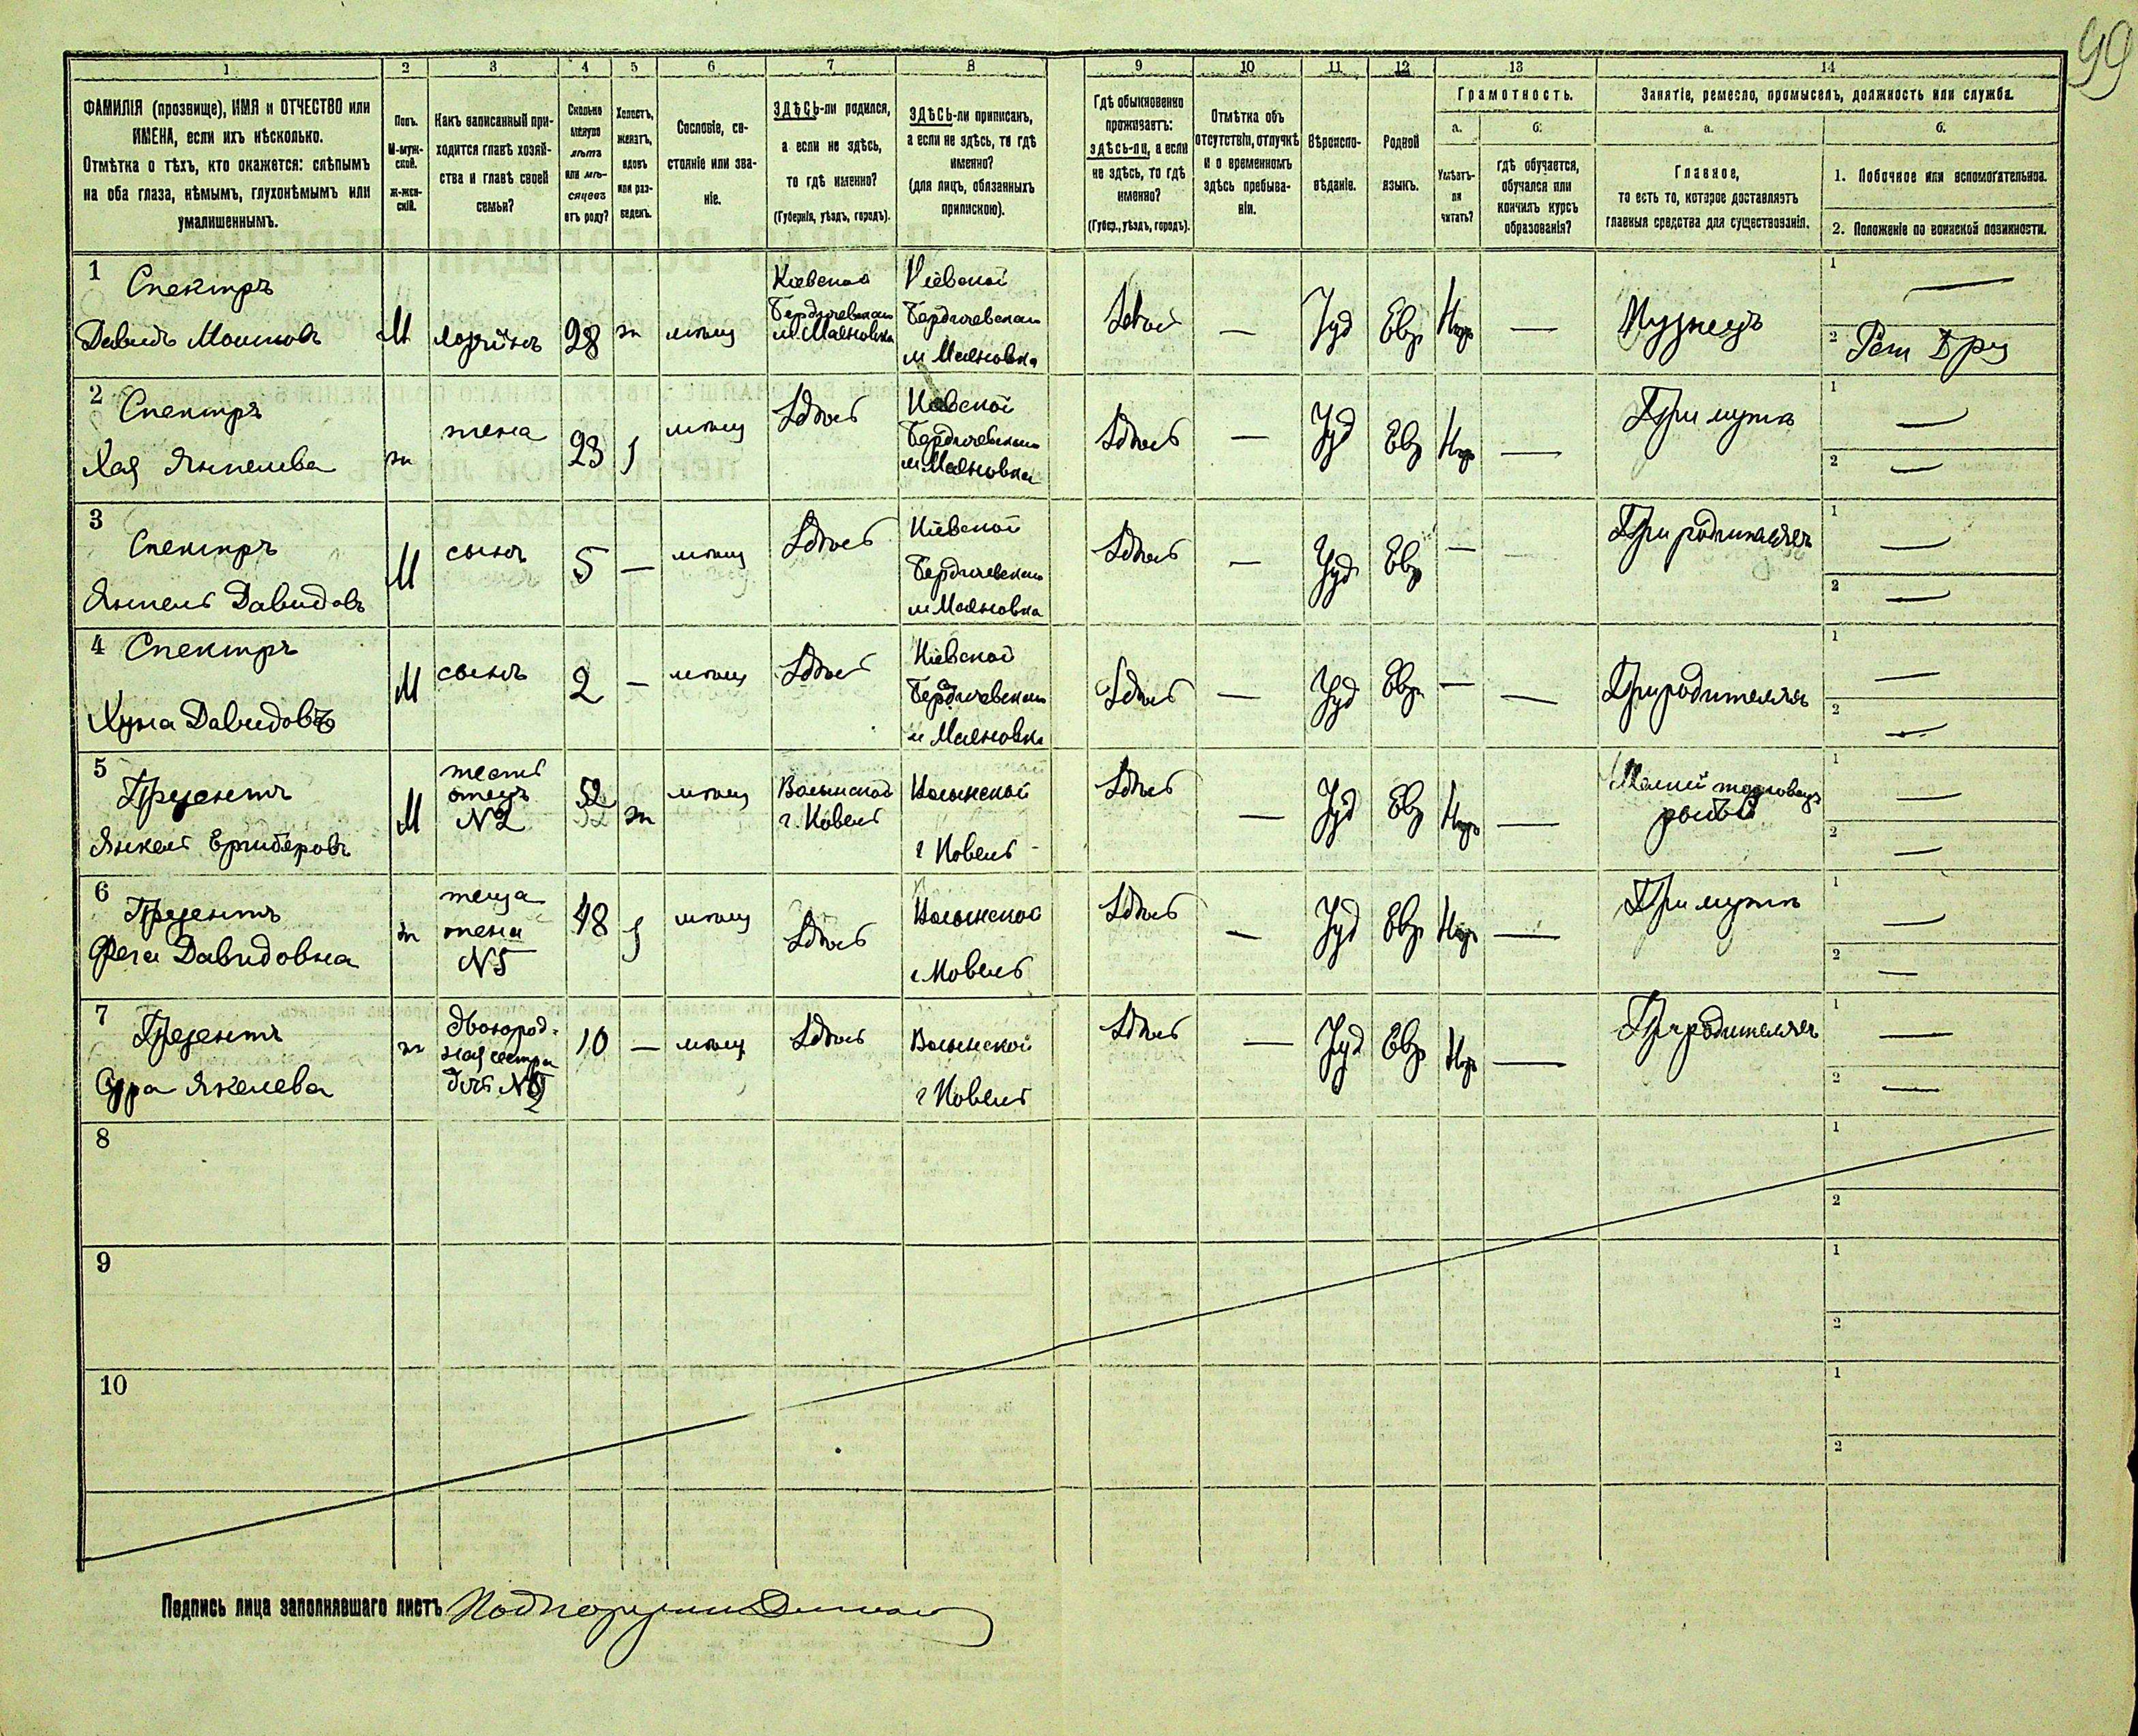 99
1 2 3 4 5 6 7 8 9 10 11 12 13 14
ФАМИЛІЯ (прозвище), ИМЯ и ОТЧЕСТВО или
ИМЕНА, если ихъ нѣсколько.
Отмѣтка о тѣхъ, кто окажется: слѣпымъ
на оба глаза, нѣмымъ, глухонѣмымъ или
умалишеннымъ.
Полъ.
М-муж-
ской.
Ж-жен-
скій.
Какъ записанный при-
ходится главѣ хозяй-
ства и главѣ своей
семьи?
Сколько
минуло
лѣтъ
или мѣ-
сяцевъ
отъ роду?
Холостъ,
женатъ,
вдовъ
или раз-
веденъ.
Сословіе, со-
стояніе или зва-
ніе.
ЗДѢСЬ-ли родился,
а если не здѣсь,
то гдѣ именно?
(Губернія, уѣздъ, городъ).
ЗДѢСЬ-ли приписанъ,
а если не здѣсь, то гдѣ
именно?
(для лицъ, обязанныхъ
припискою).
Гдѣ обыкновенно
проживаетъ:
здѣсь-ли, а если
не здѣсь, то гдѣ
именно?
(Губер., уѣздъ, городъ).
Отмѣтка объ
отсутствіи, отлучкѣ
и о временномъ
здѣсь пребыва-
ніи.
Вѣроиспо-
вѣданіе.
Родной
языкъ.
Грамотность.
а.
Умѣетъ-
ли
читать?
б.
гдѣ обучается,
обучался или
кончилъ курсъ
образованія?
Занятіе, ремесло, промыселъ, должность или служба.
а.
Главное,
то есть то, которое доставляетъ
главныя средства для существованія.
б.
1. Побочное или вспомогательное.
2. Положеніе по воинской повинности.
1
Спектръ
Давидъ Мошковъ
М
28
ж
мѣщ
Кіевской
Бердичевскаго
м. Махновка
Кіевской
Бердичевскаго
м Махновка
Здѣсь
—
Іуд
Евр
—
Кузнецъ
1 —
2
2
Спектръ
Хая Янкелева
ж
жена
23
мѣщ
Здѣсь
Кіевской
Бердичевскаго
м. Махновка
Здѣсь
—
Іуд
Евр
—
При мужѣ
1 —
2 —
3
Спектръ
Янкель Давидовъ
М
сынъ
5
—
мѣщ
Здѣсь
Кіевской
Бердичевскаго
м Махновка
Здѣсь
—
Іуд
Евр
—
При родителяхъ
1 —
2 —
4
Спектръ
Давидовъ
М
сынъ
2
—
мѣщ
Здѣсь
Кіевской
Бердичевскаго
м Махновка
Здѣсь
—
Іуд
Евр
—
—
При родителяхъ
1 —
2 —
5
Янкель
М
тесть
отецъ
№2
52
ж
мѣщ
Волынской
г. Ковель
Волынской
г Ковель
Здѣсь
—
Іуд
Евр
—
Мелкій торговецъ
рыбой
1 —
2 —
6
Давидовна
ж
теща
жена
№5
48
мѣщ
Здѣсь
Волынской
г Ковель
Здѣсь
—
Іуд
Евр
—
При мужѣ
1 —
2 —
7
Сура Якелева
ж
двоюрод-
ная сестра
10
—
мѣщ
Здѣсь
Волынской
г Ковель
Здѣсь
—
Іуд
Евр
—
При родителяхъ
1 —
2 —
8
1
2
9
1
2
10
1
2
Подпись лица заполнявшаго листъ